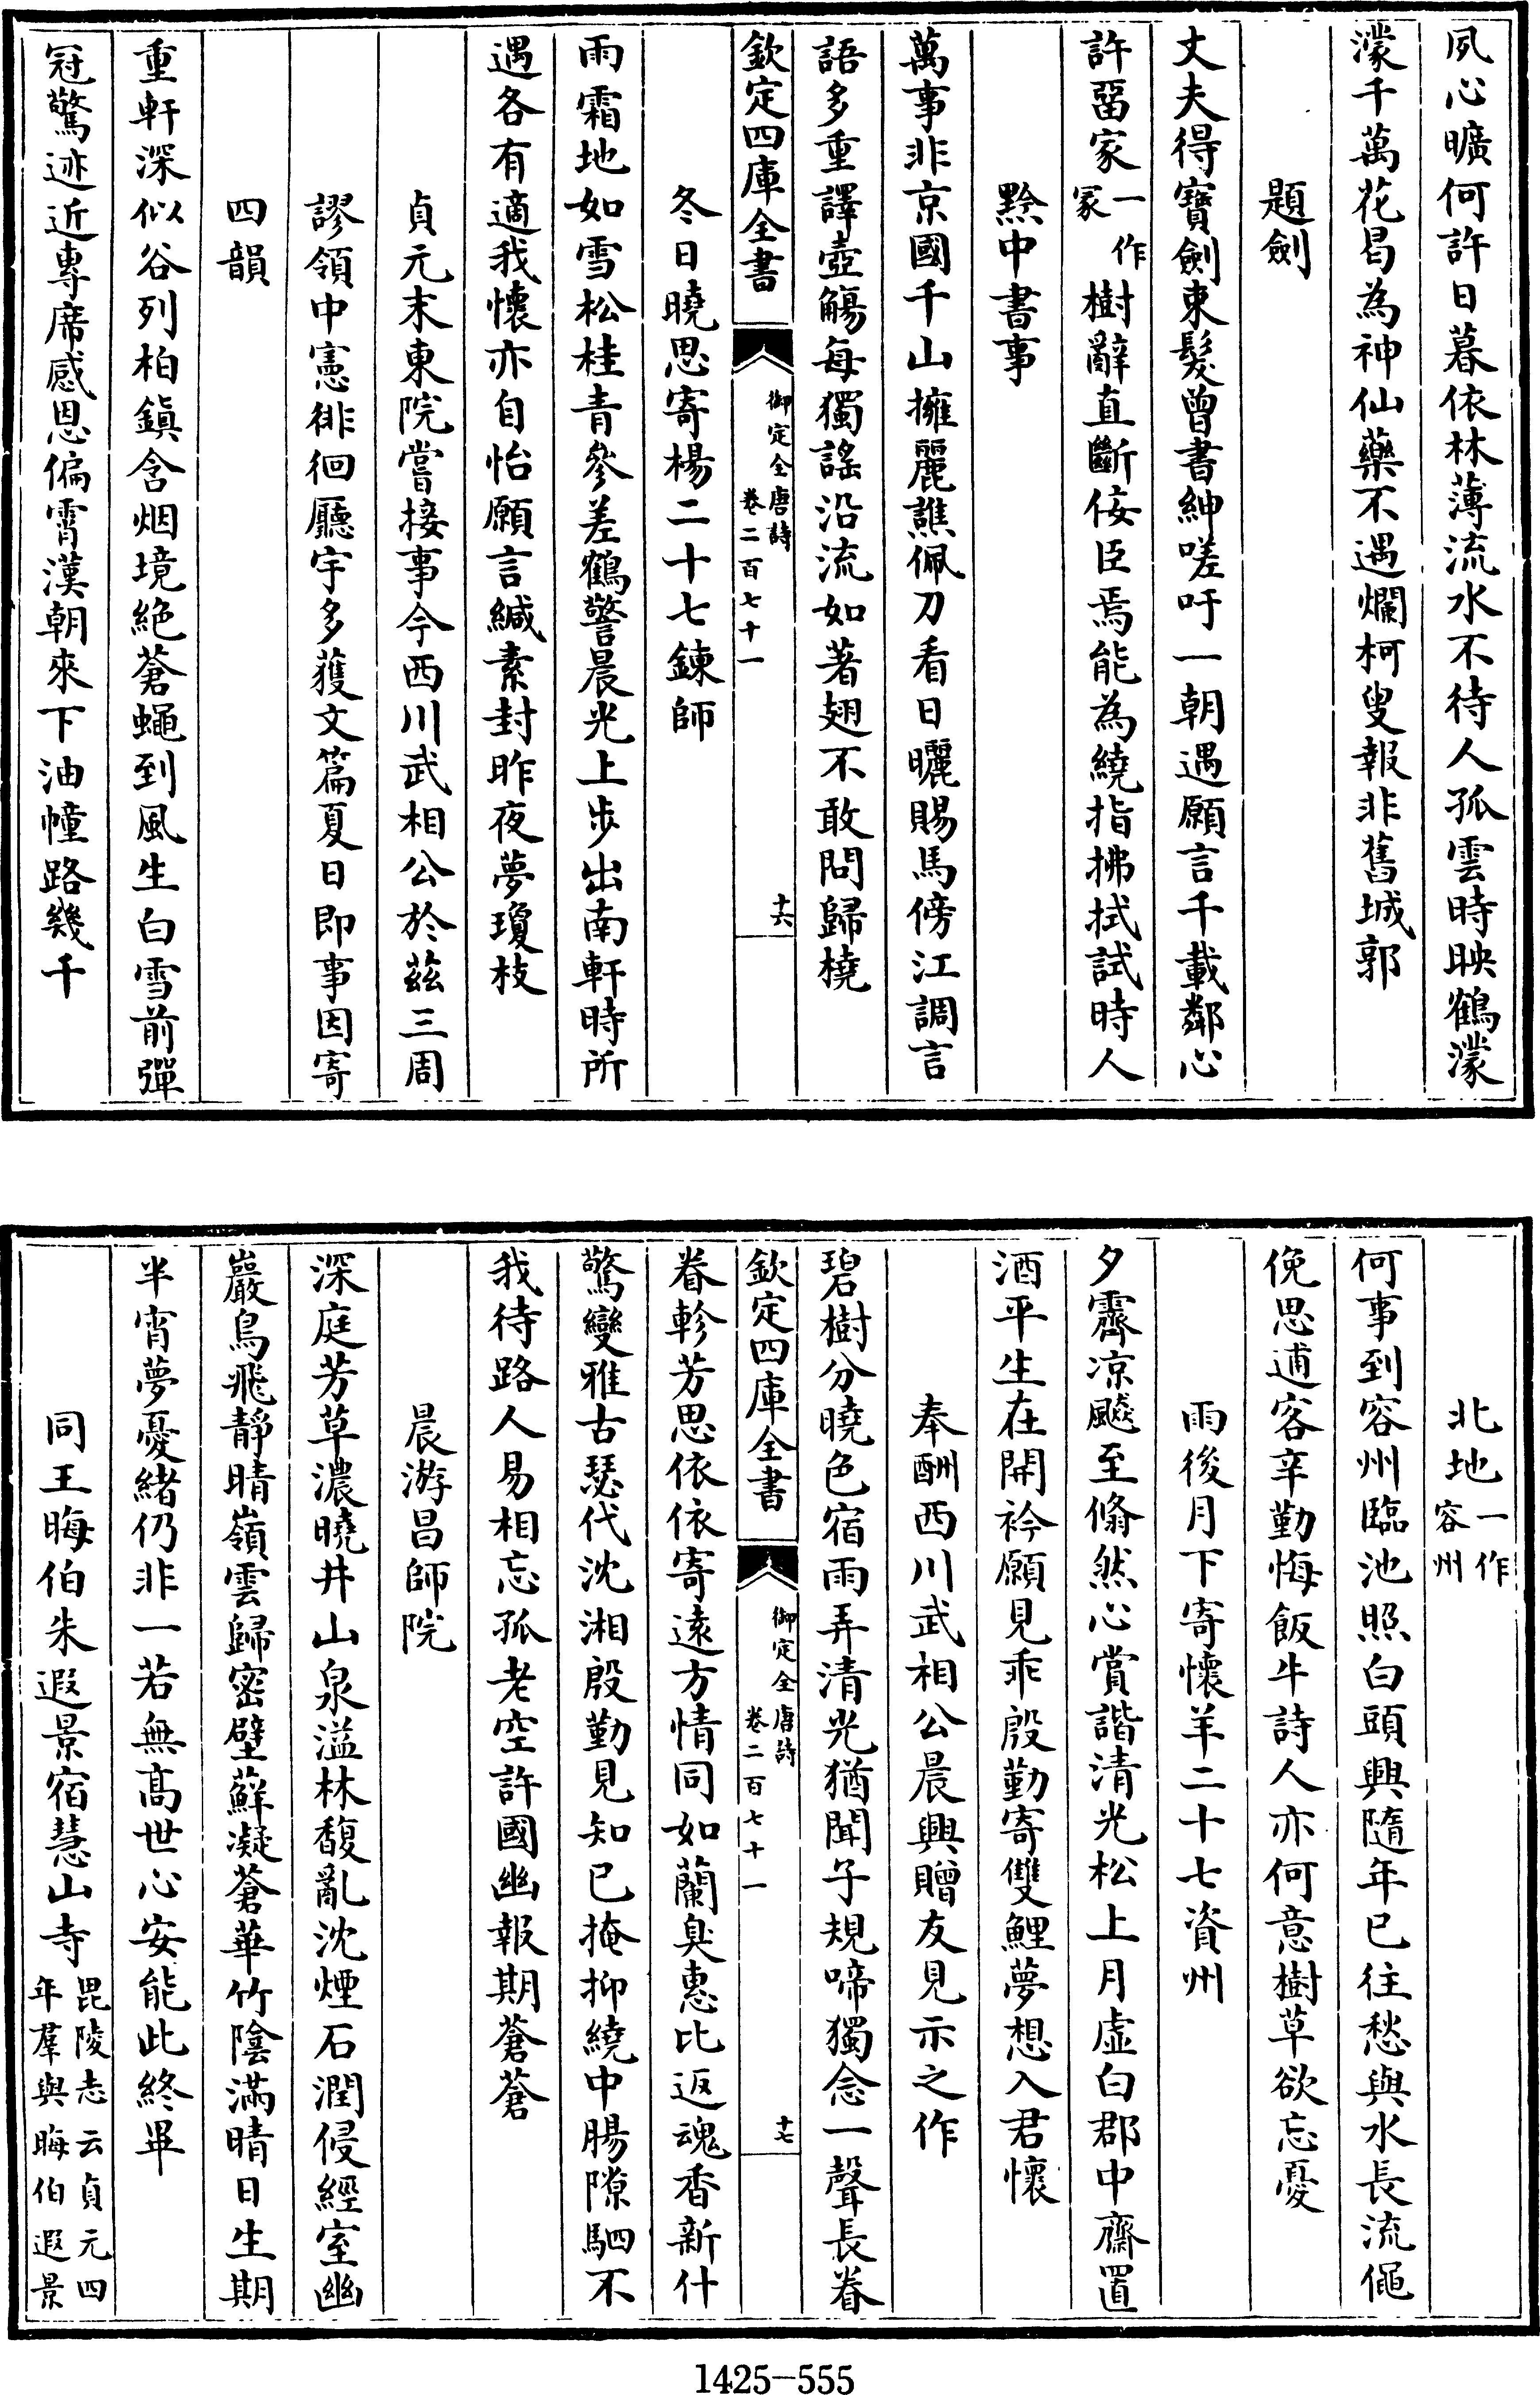 夙心曠何許日暮依林薄流水不待人孤雲時映鶴濛
濛千萬花曷為神仙藥不遇爛柯叟報非舊城郭
題劍
丈夫得寶劍束髮曾書紳嗟吁一朝遇願言千載鄰心
許畱家一作冢樹辭直斷佞臣焉能為繞指拂拭試時人
黔中書事
萬事非京國千山擁麗譙佩刀看日曬賜馬傍江調言
語多重譯壺觴每獨謡沿流如著翅不敢問歸橈
欽定四庫全書 御定全唐詩卷二百七十一 十六
冬日曉思寄楊二十七鍊師
雨霜地如雪松桂青參差鶴警晨光上步出南軒時所
遇各有適我懷亦自怡願言緘素封昨夜夢瓊枝
貞元末東院嘗接事今西川武相公於茲三周
謬領中憲徘徊廳宇多獲文篇夏日即事因寄
四韻
重軒深似谷列柏鎮含烟境絶蒼蠅到風生白雪前彈
冠驚迹近專席感恩偏霄漢朝來下油幢路幾千
北地一作容州
何事到容州臨池照白頭興隨年已往愁與水長流僶
俛思逋客辛勤悔飯牛詩人亦何意樹草欲忘憂
雨後月下寄懷羊二十七資州
夕霽凉飈至翛然心賞諧清光松上月虛白郡中齋置
酒平生在開衿願見乖殷勤寄雙鯉夢想入君懷
奉酬西川武相公晨興贈友見示之作
碧樹分曉色宿雨弄清光猶聞子規啼獨念一聲長眷
欽定四庫全書 御定全唐詩卷二百七十一 十七
眷軫芳思依依寄遠方情同如蘭臭惠比返魂香新什
驚變雅古瑟代沈湘殷勤見知已掩抑繞中腸隙駟不
我待路人易相忘孤老空許國幽報期蒼蒼
晨游昌師院
深庭芳草濃曉井山泉溢林馥亂沈煙石潤侵經室幽
巖鳥飛靜晴嶺雲歸密壁蘚凝蒼華竹陰滿晴日生期
半宵夢憂緒仍非一若無髙世心安能此終畢
同王晦伯朱遐景宿慧山寺毘陵志云貞元四年羣與晦伯遐景
1425-555